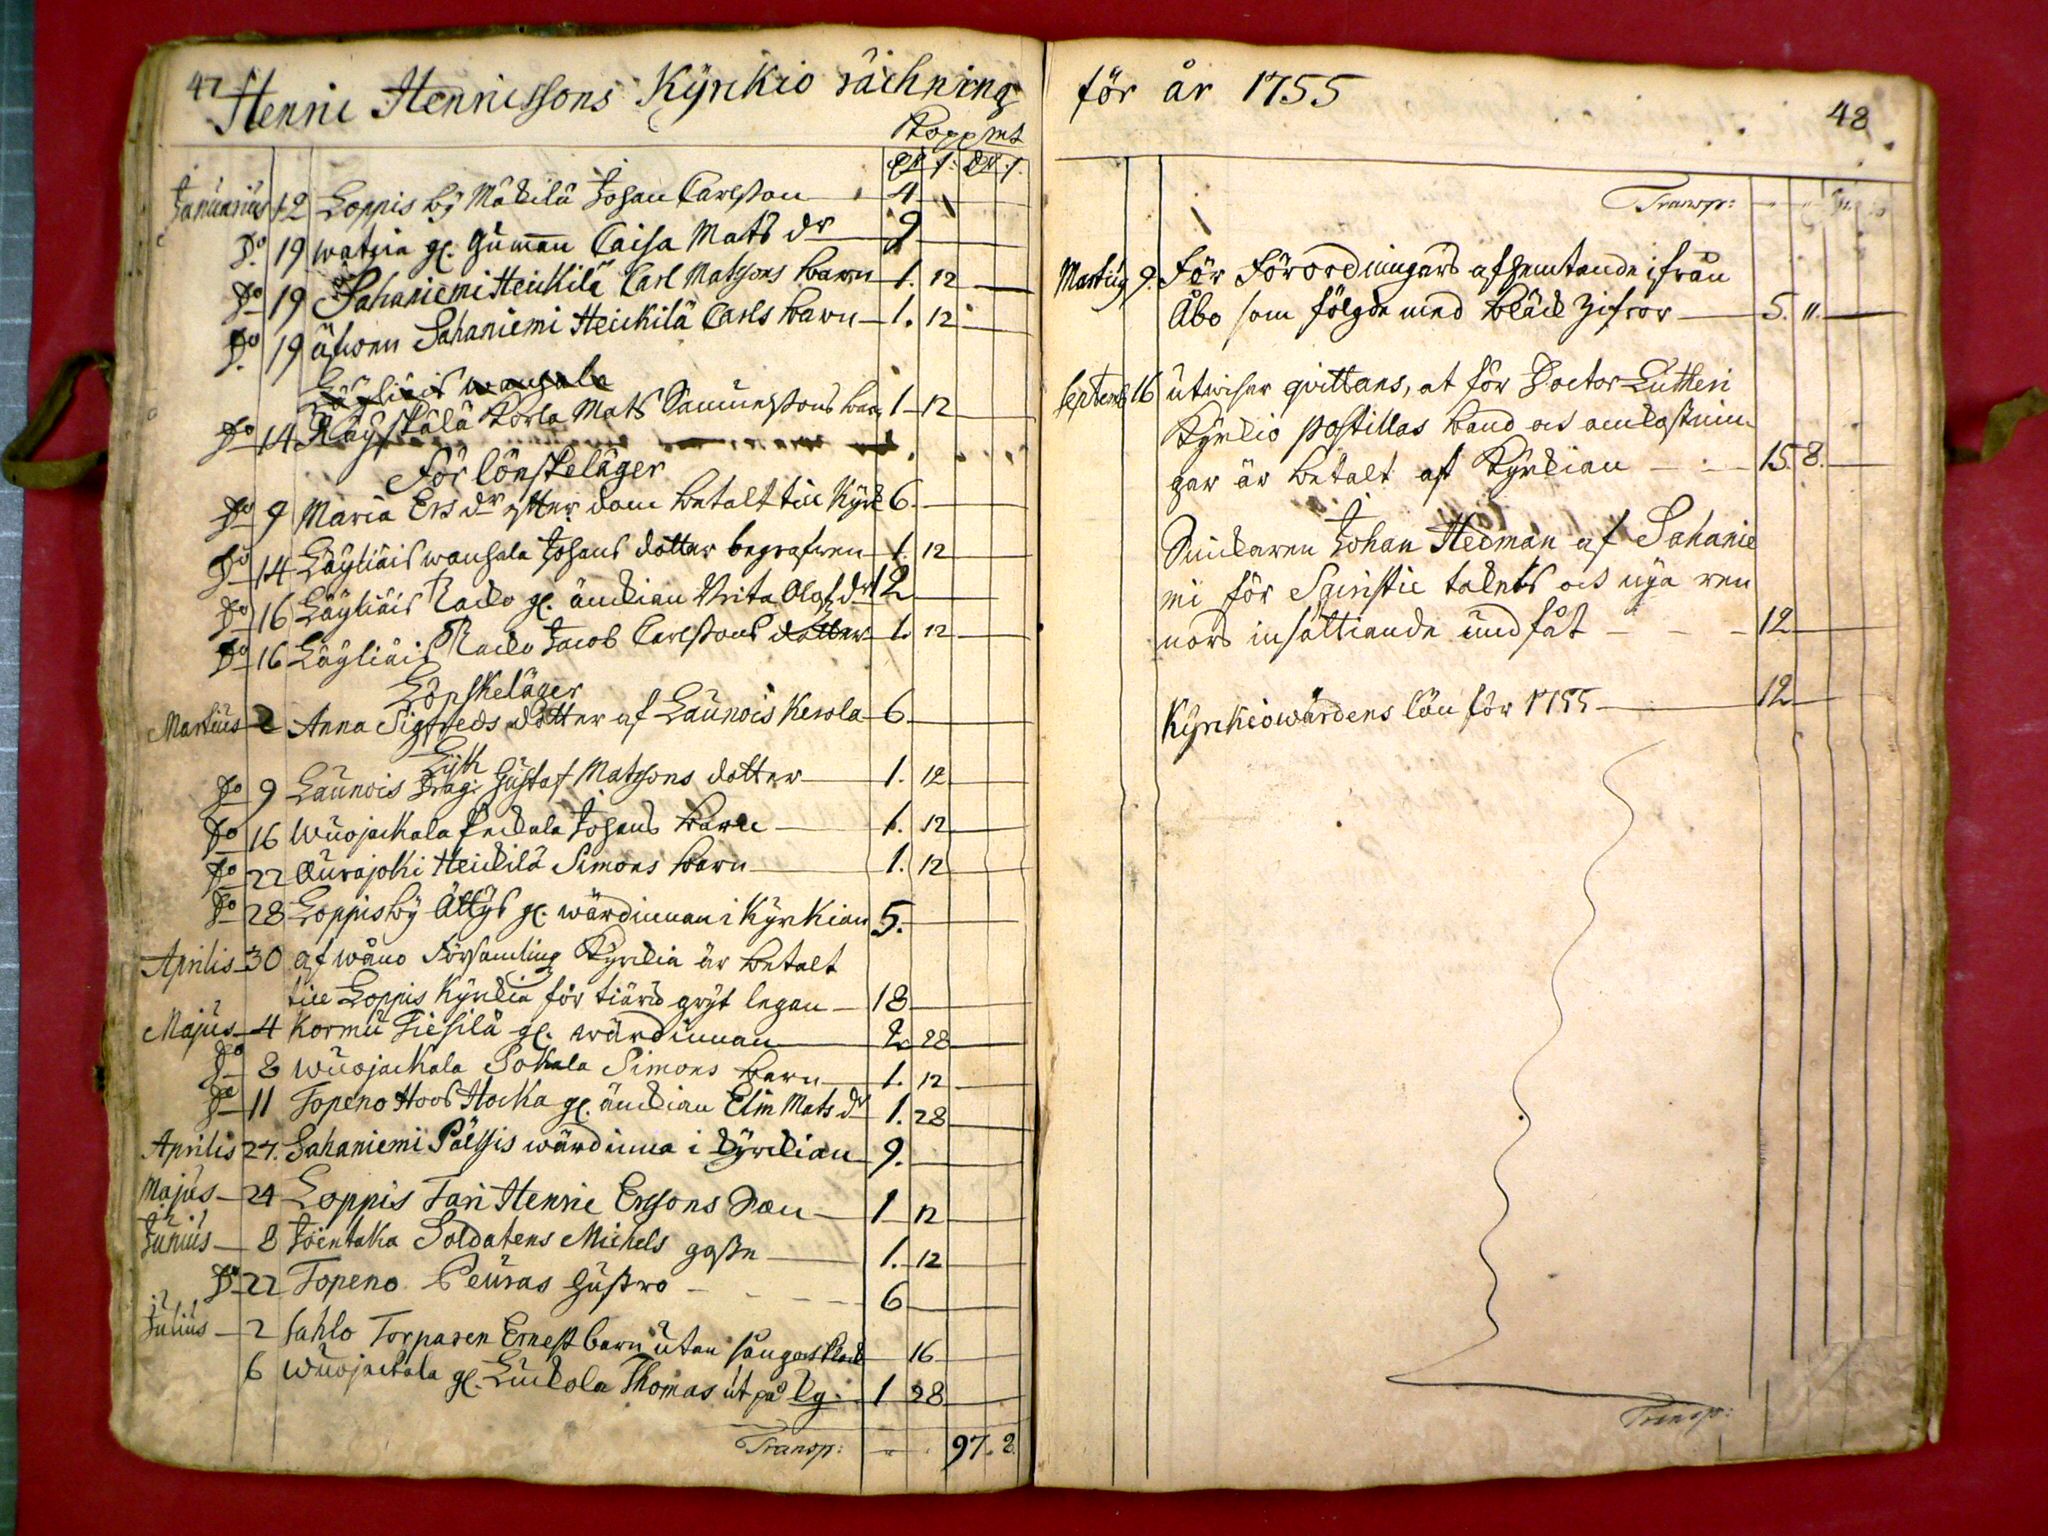 47
Henric Henricssons Kÿrckio räckning
Kopp mt
Januarius 12 Loppis bÿ Mäckilä Johan Carlsson 4
Do 19 watzia gl. gumman Caisa Mats dr 9
Do 19 Sahaniemi Heickilä Carl Matssons barn 1. 12
Do 19 äfwen Sahaniemi Heickilä Carls barn 1. 12
Läÿliäis wansala
Do 14 Räÿskälä Korla Mats Samuelssons barn 1 12
För lönskeläger
Do 9 Maria Ers dr efter dom betalt till Kÿrck 6.
Do 14 Läÿliäis wansala Johans dotter begrafwen 1. 12
Do 16 Läÿliäis Kacko gl. änckian Brita Olofs dr 12
Do 16 Läÿliäis Kacko Jacob Carlssons dotter 1. 12
Lönskeläger
Martius 2 Anna Sigfreds dotter af Launois Kerola 6
Do 9 Launois Gustaf Matssons dotter 1. 12
Do 16 Wuojackala Peckala Johans barn 1. 12
Do 22 Ourajoki Heickilä Simons barn 1. 12
Do 28 Loppis bÿ Ättÿs gl. wärdinnan i Kÿrckian 5.
Aprilis 30 af wåno Församling Kÿrckia är betalt
till Loppis Kÿrckia för tiäru grÿt legan 18
Majus 4 Kormu Piesilä gl. wärdinnan 2 28
Do 8 Wuojackala Sokala Simons barn 1. 12
Do 11 Topeno Hoos Hocka gl. änckian Elin Mats dr 1. 28
Aprilis 27. Sahaniemi Pälssis wärdinna i kÿrckian 9.
Majus 24 Loppis Tari Henric Ersons Son 1 12
Junius 8 Joentaka Soldatens Michels gosse 1. 12
Do 22 Topeno Peuras Gustro 6
Julius 2 Sahlo Torparen Ernest barn utan sång ock klock 16
6 Wuojackala gl. Luckola Thomas ut på Kg. 1 28
Transp: 97. 2
för år 1755
48
Transp:
Martius 9. För Förordningars afhemtande ifrån
Åbo som fölgde med bläck Zifror 5. 11.
Septemb 16 utwisar qvittans, at för Doctor Lutheri
Kÿrckio postillas band och omkostnin
gar är betalt af Kÿrckian 15 8.
Snickaren Johan Hedman af Sahanie
mi för och nÿa ren
nors insättiande undfåt 12
Kÿrckiowärdens lön för 1755 12
Transp: